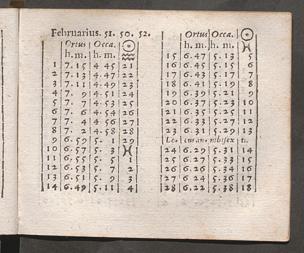 Februarius. 51. 50. 52.
Ortus Occa. ☉
h. m. h. m. ♒
1 7. 15 4. 45 21
2 7. 4. 22
3 7. 13 4. 23
4 7. 24
5 7. 25
6 7. 4. 54 26
7 7. 4. 27
8 7. 2 4. 58 28
9 6. 59 5. 1 29
10 6. 57 5. 3 ♓
11 6. 55 5. 1
12 6. 53 5. 7 2
13 6. 51 5. 9 3
14 6. 49 5. 11 4
Ortus Occa. ☉
h. m. h. m. ♓
15 6. 47 5. 13 5
16 6. 45 5. 15 6
17 6. 43 5. 17 7
18 6. 41 5. 19 8
19 6. 39 5. 21 9
20 6. 37 5. 23 10
21 6. 35 5. 25 11
22 6. 33 5. 27 12
23 6. 31 5. 29 13
24 6. 29 5. 31 14
25 6. 27 5. 33 15
26 6. 26 5. 34 16
27 6. 24 5. 36 17
28 6. 22 5. 38 18